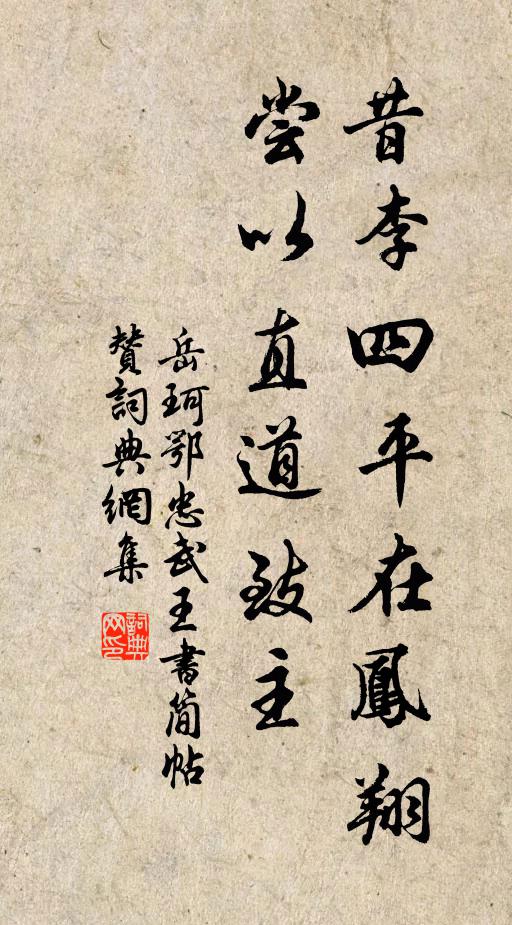 昔李四平在鳳翔
尝以直道致主
岳珂鄂忠武王書简帖
赞詞典網集
詞典网印